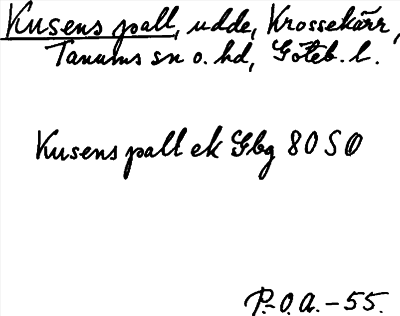 Kusens pall, udde, Krossekärr,
Tanums sn o. hd, Göteb. l.
Kusens pall ek Gbg 80 SO
P.-O.A. - 55.